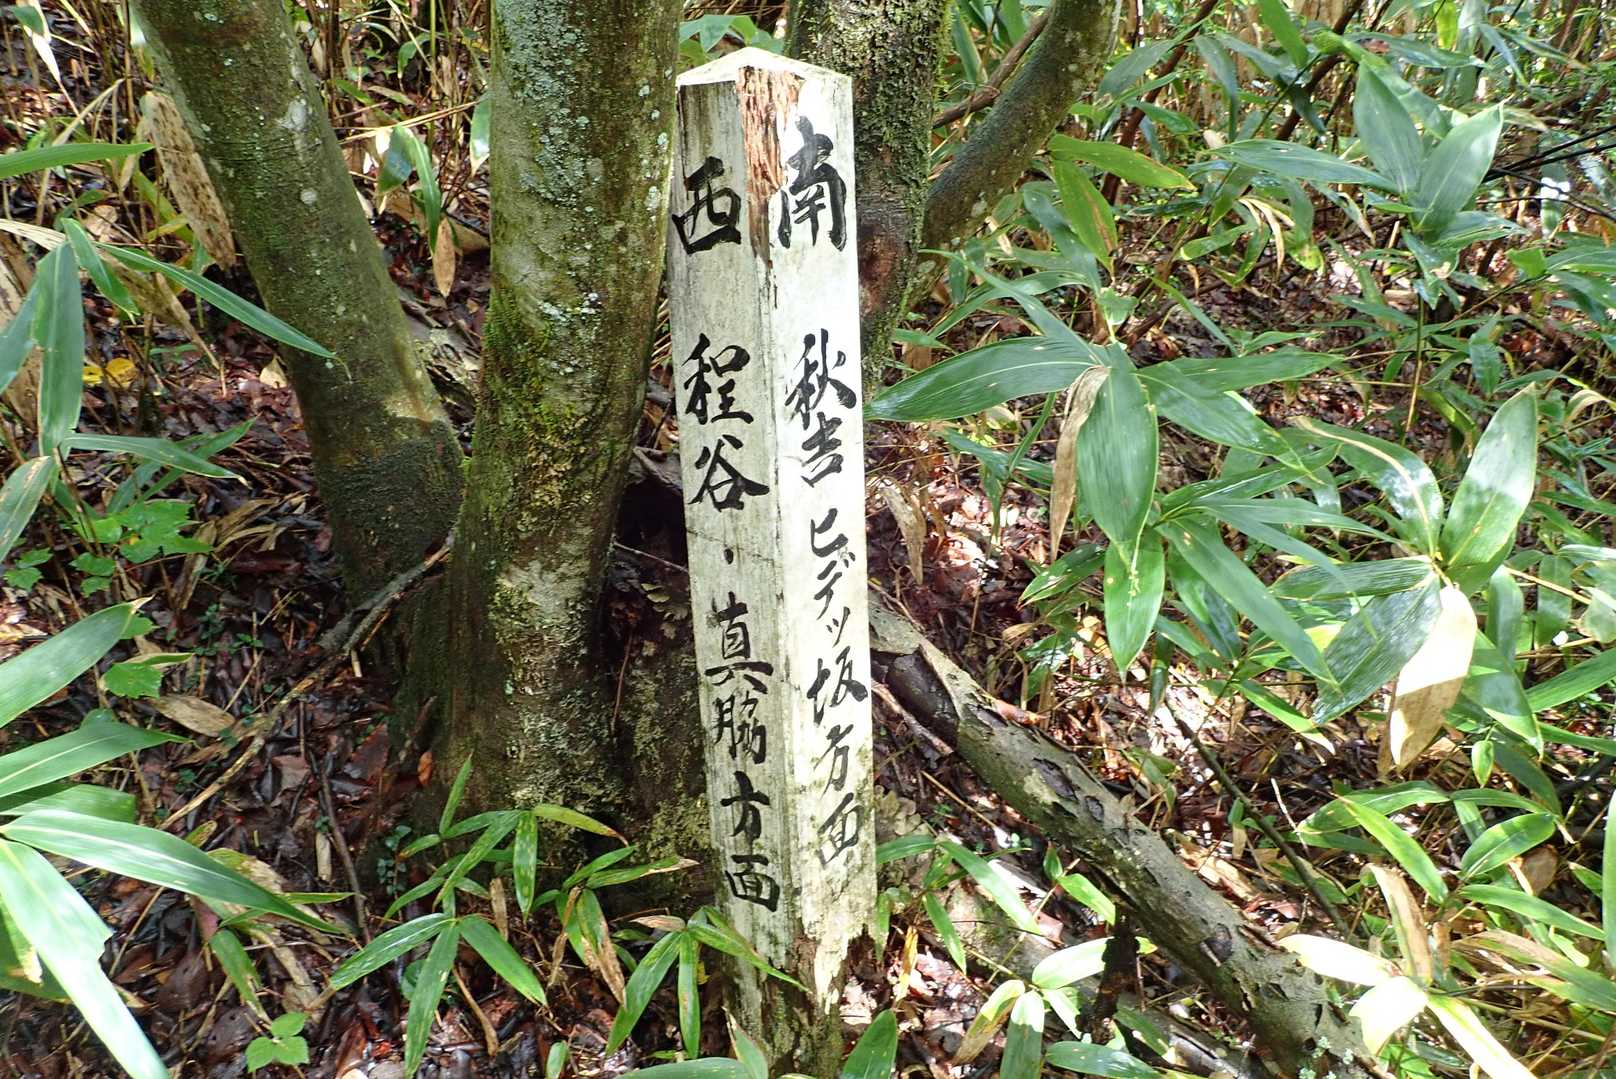 南 秋吉 ヒデッ坂方面
西 程谷・真脇方面